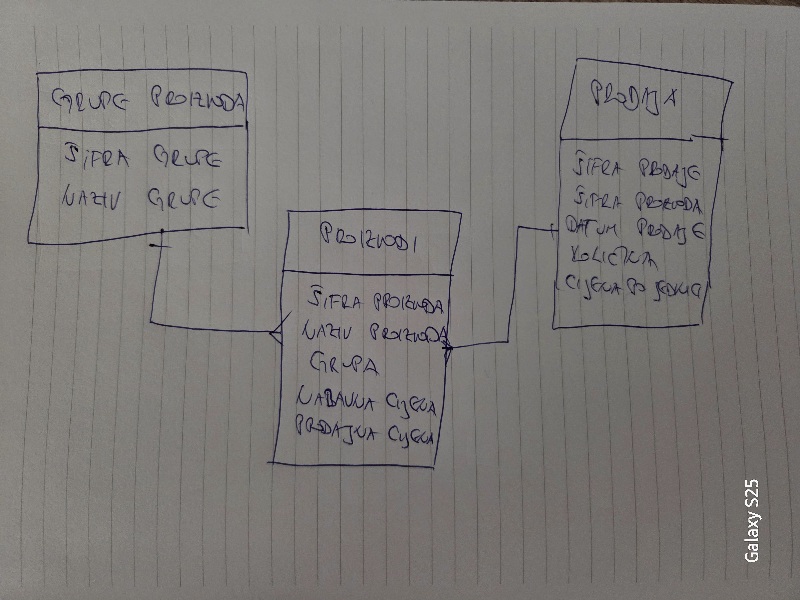 GRUPE PROIZVODA
ŠIFRA GRUPE
NAZIV GRUPE
PROIZVODI
ŠIFRA PROIZVODA
NAZIV PROIZVODA
GRUPA
NABAVNA CIJENA
PRODAJNA CIJENA
PRODAJA
ŠIFRA PRODAJE
ŠIFRA PROIZVODA
DATUM PRODAJE
KOLIČINA
CIJENA PO
Galaxy S25